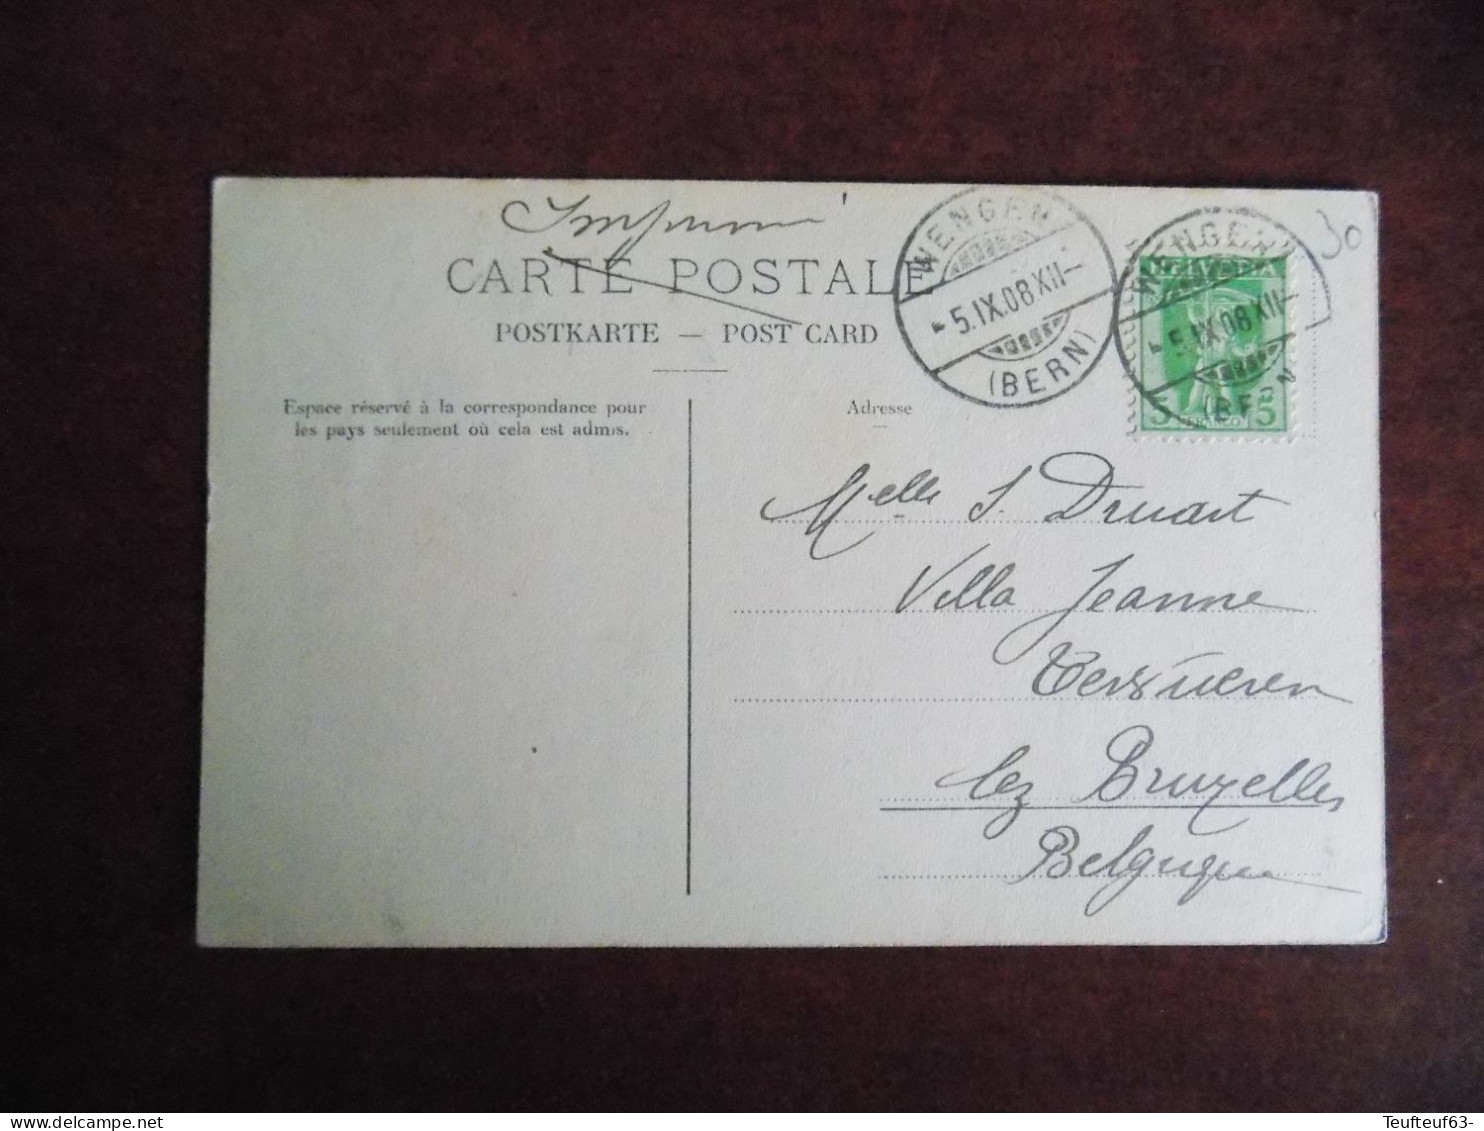 Imprimé
CARTE POSTALE
POSTKARTE — POST CARD
Espace réservé à la correspondance pour
les pays seulement où cela est admis.
Adresse
WENGEN
5.IX.08 XII—
(BERN)
WENGEN
5.IX.08 XII—
(BERN)
HELVETIA
5 FRANCO 5
30
Melle S. Druart
Villa Jeanne
Tervueren
lez Bruxelles
Belgique
Teufteuf63-